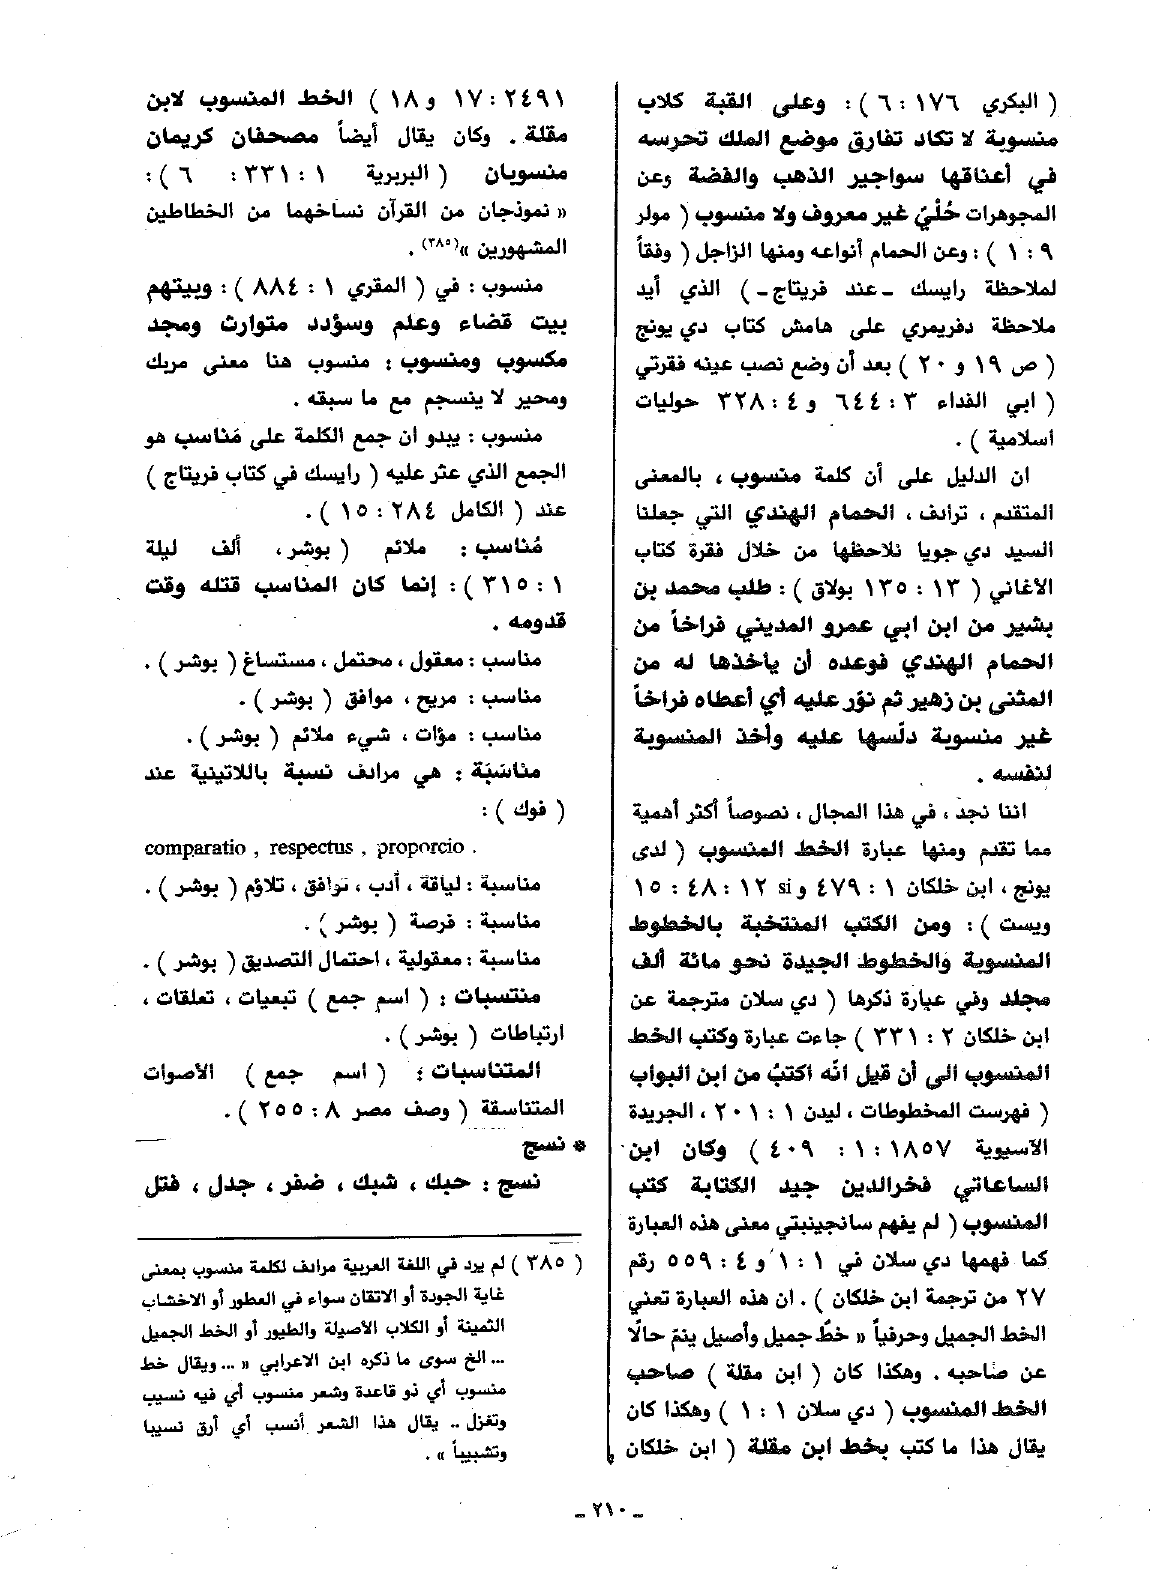 ( البكري ١٧٦ : ٦ ) : وعلى القبة كلاب
منسوبة لا تكاد تفارق موضع الملك تحرسه
في أعناقها سواجير الذهب والفضة وعن
المجوهرات حُلْيٌ غير معروف ولا منسوب ( مولر
٩ : ١ ) : وعن الحمام أنواعه ومنها الزاجل ( وفقاً
لملاحظة رايسك ـ عند فريتاج ـ ) الذي أيد
ملاحظة دفريمري على هامش كتاب دي يونج
( ص ١٩ و ٢٠ ) بعد أن وضع نصب عينه فقرتي
( ابي الفداء ٣ : ٦٤٤ و ٤ : ٣٢٨ حوليات
اسلامية ) .
ان الدليل على أن كلمة منسوب ، بالمعنى
المتقدم ، ترادف ، الحمام الهندي التي جعلنا
السيد دي جويا نلاحظها من خلال فقرة كتاب
الأغاني ( ١٣ : ١٣٥ بولاق ) : طلب محمد بن
بشير من ابن ابي عمرو المديني فراخاً من
الحمام الهندي فوعده أن يأخذها له من
المثنى بن زهير ثم نوّر عليه أي أعطاه فراخاً
غير منسوبة دلّسها عليه وأخذ المنسوبة
لنفسه .
اننا نجد ، في هذا المجال ، نصوصاً أكثر أهمية
مما تقدم ومنها عبارة الخط المنسوب ( لدى
يونج ، ابن خلكان ١ : ٤٧٩ و si ١٢ : ٤٨ : ١٥
ويست ) : ومن الكتب المنتخبة بالخطوط
المنسوبة والخطوط الجيدة نحو مائة ألف
مجلد وفي عبارة ذكرها ( دي سلان مترجمة عن
ابن خلكان ٢ : ٣٣١ ) جاءت عبارة وكتب الخط
المنسوب الى أن قيل انّه اكتبُ من ابن البواب
( فهرست المخطوطات ، ليدن ١ : ٢٠١ ، الجريدة
الآسيوية ١٨٥٧ : ١ : ٤٠٩ ) وكان ابن
الساعاتي فخرالدين جيد الكتابة كتب
المنسوب ( لم يفهم سانجينيتي معنى هذه العبارة
كما فهمها دي سلان في ١ : ١ و ٤ : ٥٥٩ رقم
٢٧ من ترجمة ابن خلكان ) . ان هذه العبارة تعني
الخط الجميل وحرفياً « خطّ جميل وأصيل ينمّ حالًا
عن صاحبه . وهكذا كان ( ابن مقلة ) صاحب
الخط المنسوب ( دي سلان ١ : ١ ) وهكذا كان
يقال هذا ما كتب بخط ابن مقلة ( ابن خلكان
١٧ : ٢٤٩١ و ١٨ ) الخط المنسوب لابن
مقلة . وكان يقال أيضاً مصحفان كريمان
منسوبان ( البربرية ١ : ٣٣١ : ٦ ) :
« نموذجان من القرآن نساخهما من الخطاطين
المشهورين »(٣٨٥) .
منسوب : في ( المقري ١ : ٨٨٤ ) : وبيتهم
بيت قضاء وعلم وسؤدد متوارث ومجد
مكسوب ومنسوب : منسوب هنا معنى مربك
ومحير لا ينسجم مع ما سبقه .
منسوب : يبدو ان جمع الكلمة على مَناسب هو
الجمع الذي عثر عليه ( رايسك في كتاب فريتاج )
عند ( الكامل ٢٨٤ : ١٥ ) .
مُناسب : ملائم ( بوشر ، ألف ليلة
١ : ٣١٥ ) : إنما كان المناسب قتله وقت
قدومه .
مناسب : معقول ، محتمل ، مستساغ ( بوشر ) .
مناسب : مريح ، موافق ( بوشر ) .
مناسب : مؤات ، شيء ملائم ( بوشر ) .
مناسَبَة : هي مرادف نسبة باللاتينية عند
( فوك ) :
comparatio , respectus , proporcio .
مناسبة : لياقة ، أدب ، توافق ، تلاؤم ( بوشر ) .
مناسبة : فرصة ( بوشر ) .
مناسبة : معقولية ، احتمال التصديق ( بوشر ) .
منتسبات : ( اسم جمع ) تبعيات ، تعلقات ،
ارتباطات ( بوشر ) .
المتناسبات : ( اسم جمع ) الأصوات
المتناسقة ( وصف مصر ٨ : ٢٥٥ ) .
* نسج
نسج : حبك ، شبك ، ضفر ، جدل ، فتل
( ٣٨٥ ) لم يرد في اللغة العربية مرادف لكلمة منسوب بمعنى
غاية الجودة أو الاتقان سواء في العطور أو الاخشاب
الثمينة أو الكلاب الأصيلة والطيور أو الخط الجميل
... الخ سوى ما ذكره ابن الاعرابي « ... ويقال خط
منسوب أي ذو قاعدة وشعر منسوب أي فيه نسيب
وتغزل .. يقال هذا الشعر أنسب أي أرق نسيبا
وتشبيباً » .
ـ ٢١٠ ـ